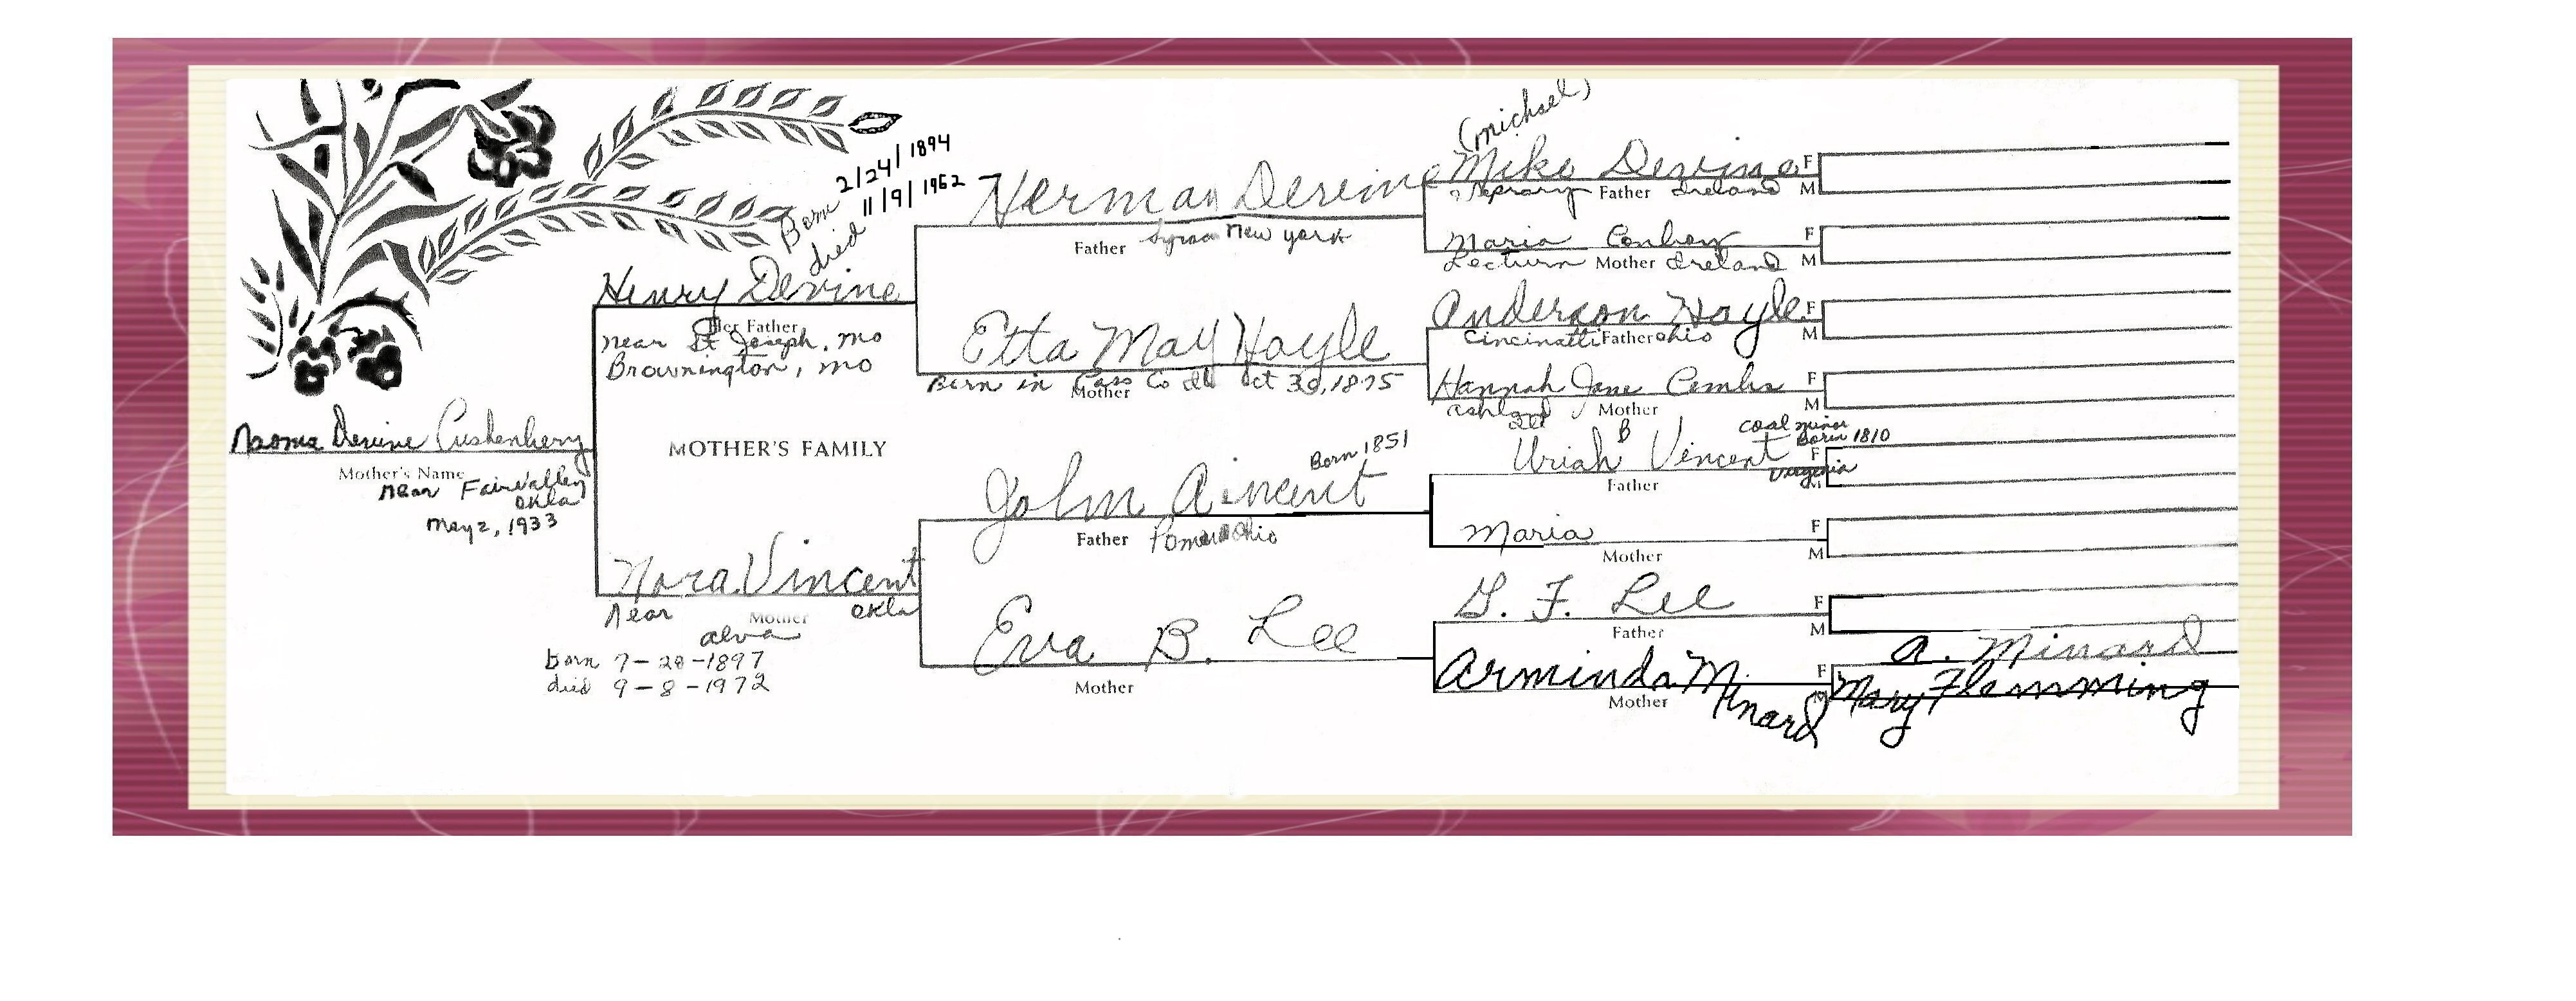 Naoma Devine Cushenbery
Mother's Name
near Fairvalley
Okla
May 2, 1933
MOTHER'S FAMILY
Born 2/24/1894
died 11/9/1962
Henry Devine
Her Father
near St Joseph, Mo
Brownington, Mo
Nora Vincent
near Mother Okla
alva
born 7-20-1897
died 9-8-1972
Herman Devine
Father New York
Etta May Hoyle
Born in Cass Co Ill Oct 30, 1875
Mother
Born 1851
John Vincent
Father Ohio
Eva B. Lee
Mother
(Michael)
Mike Devine F
Father Ireland M
Maria Conboy F
Mother Ireland M
Anderson Hoyle F
Cincinatti Father Ohio M
Hannah Jane Combs F
Ashland Mother M
Ill
B coal miner
Uriah Vincent Born 1810
F
Virginia
Father
Maria F
Mother M
G. F. Lee F
Father M
Arminda Minard F
Mother
A. Minard
Mary Flemming